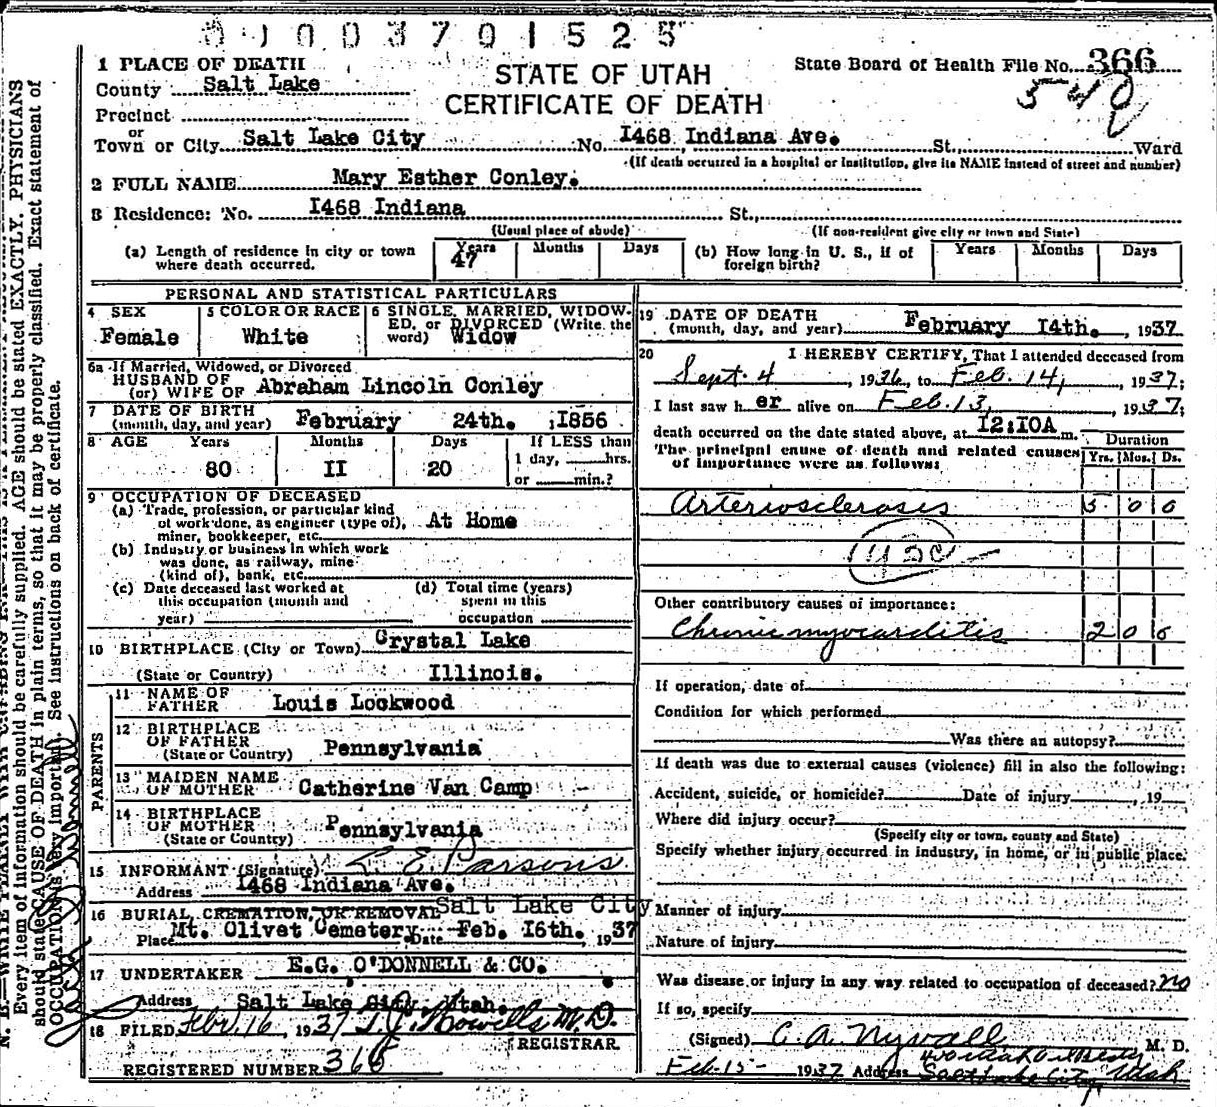 00003701525
1 PLACE OF DEATH
County Salt Lake
Precinct
or
Town or City Salt Lake City No. 1468 Indiana Ave. St., Ward
STATE OF UTAH
CERTIFICATE OF DEATH
State Board of Health File No. 366
540
(If death occurred in a hospital or institution, give its NAME instead of street and number)
2 FULL NAME Mary Esther Conley.
3 Residence: No. I468 Indiana St.,
(Usual place of abode) (If non-resident give city or town and State)
(a) Length of residence in city or town where death occurred. Years 47 Months Days
(b) How long in U. S., if of foreign birth? Years Months Days
PERSONAL AND STATISTICAL PARTICULARS
4 SEX Female
5 COLOR OR RACE White
6 SINGLE, MARRIED, WIDOWED, or DIVORCED (Write the word) Widow
6a If Married, Widowed, or Divorced
HUSBAND OF
(or) WIFE OF Abraham Lincoln Conley
7 DATE OF BIRTH
(month, day, and year) February 24th. 1856
8 AGE Years 80 Months II Days 20
If LESS than
1 day, hrs.
or min.?
9 OCCUPATION OF DECEASED
(a) Trade, profession, or particular kind
of work done, as engineer (type of),
miner, bookkeeper, etc. At Home
(b) Industry or business in which work
was done, as railway, mine
(kind of), bank, etc.
(c) Date deceased last worked at
this occupation (month and
year)
(d) Total time (years)
spent in this
occupation
10 BIRTHPLACE (City or Town) Crystal Lake
(State or Country) Illinois.
PARENTS
11 NAME OF
FATHER Louis Lockwood
12 BIRTHPLACE
OF FATHER
(State or Country) Pennsylvania
13 MAIDEN NAME
OF MOTHER Catherine Van Camp
14 BIRTHPLACE
OF MOTHER
(State or Country) Pennsylvania
15 INFORMANT (Signature) E. Parsons
Address I468 Indiana Ave.
16 BURIAL, CREMATION, OR REMOVAL Salt Lake City
Place Mt. Olivet Cemetery Date Feb. I6th. 1937
17 UNDERTAKER E.G. O'DONNELL & CO.
Address Salt Lake City, Utah.
18 FILED Feb. 16 1937 T. J. Howells M.D.
REGISTRAR
REGISTERED NUMBER 365
19 DATE OF DEATH
(month, day, and year) February I4th. , 1937
20 I HEREBY CERTIFY, That I attended deceased from
Sept. 4 , 1936, to Feb. 14, , 1937;
I last saw her alive on Feb. 13, , 1937;
death occurred on the date stated above, at I2:I0A m.
The principal cause of death and related causes
of importance were as follows:
Duration
Yrs. Mos. Ds.
Arteriosclerosis 5 0 0
Other contributory causes of importance:
Chronic myocarditis 2 0 0
If operation, date of
Condition for which performed
Was there an autopsy?
If death was due to external causes (violence) fill in also the following:
Accident, suicide, or homicide? Date of injury , 19
Where did injury occur?
(Specify city or town, county and State)
Specify whether injury occurred in industry, in home, or in public place.
Manner of injury
Nature of injury
Was disease or injury in any way related to occupation of deceased? no
If so, specify
(Signed) C A Nywall M. D.
Feb-15- 1937 Address Salt Lake City, Utah
Every item of information should be carefully supplied. AGE should be stated EXACTLY. PHYSICIANS
should state CAUSE OF DEATH in plain terms, so that it may be properly classified. Exact statement of
OCCUPATION is very important. See instructions on back of certificate.